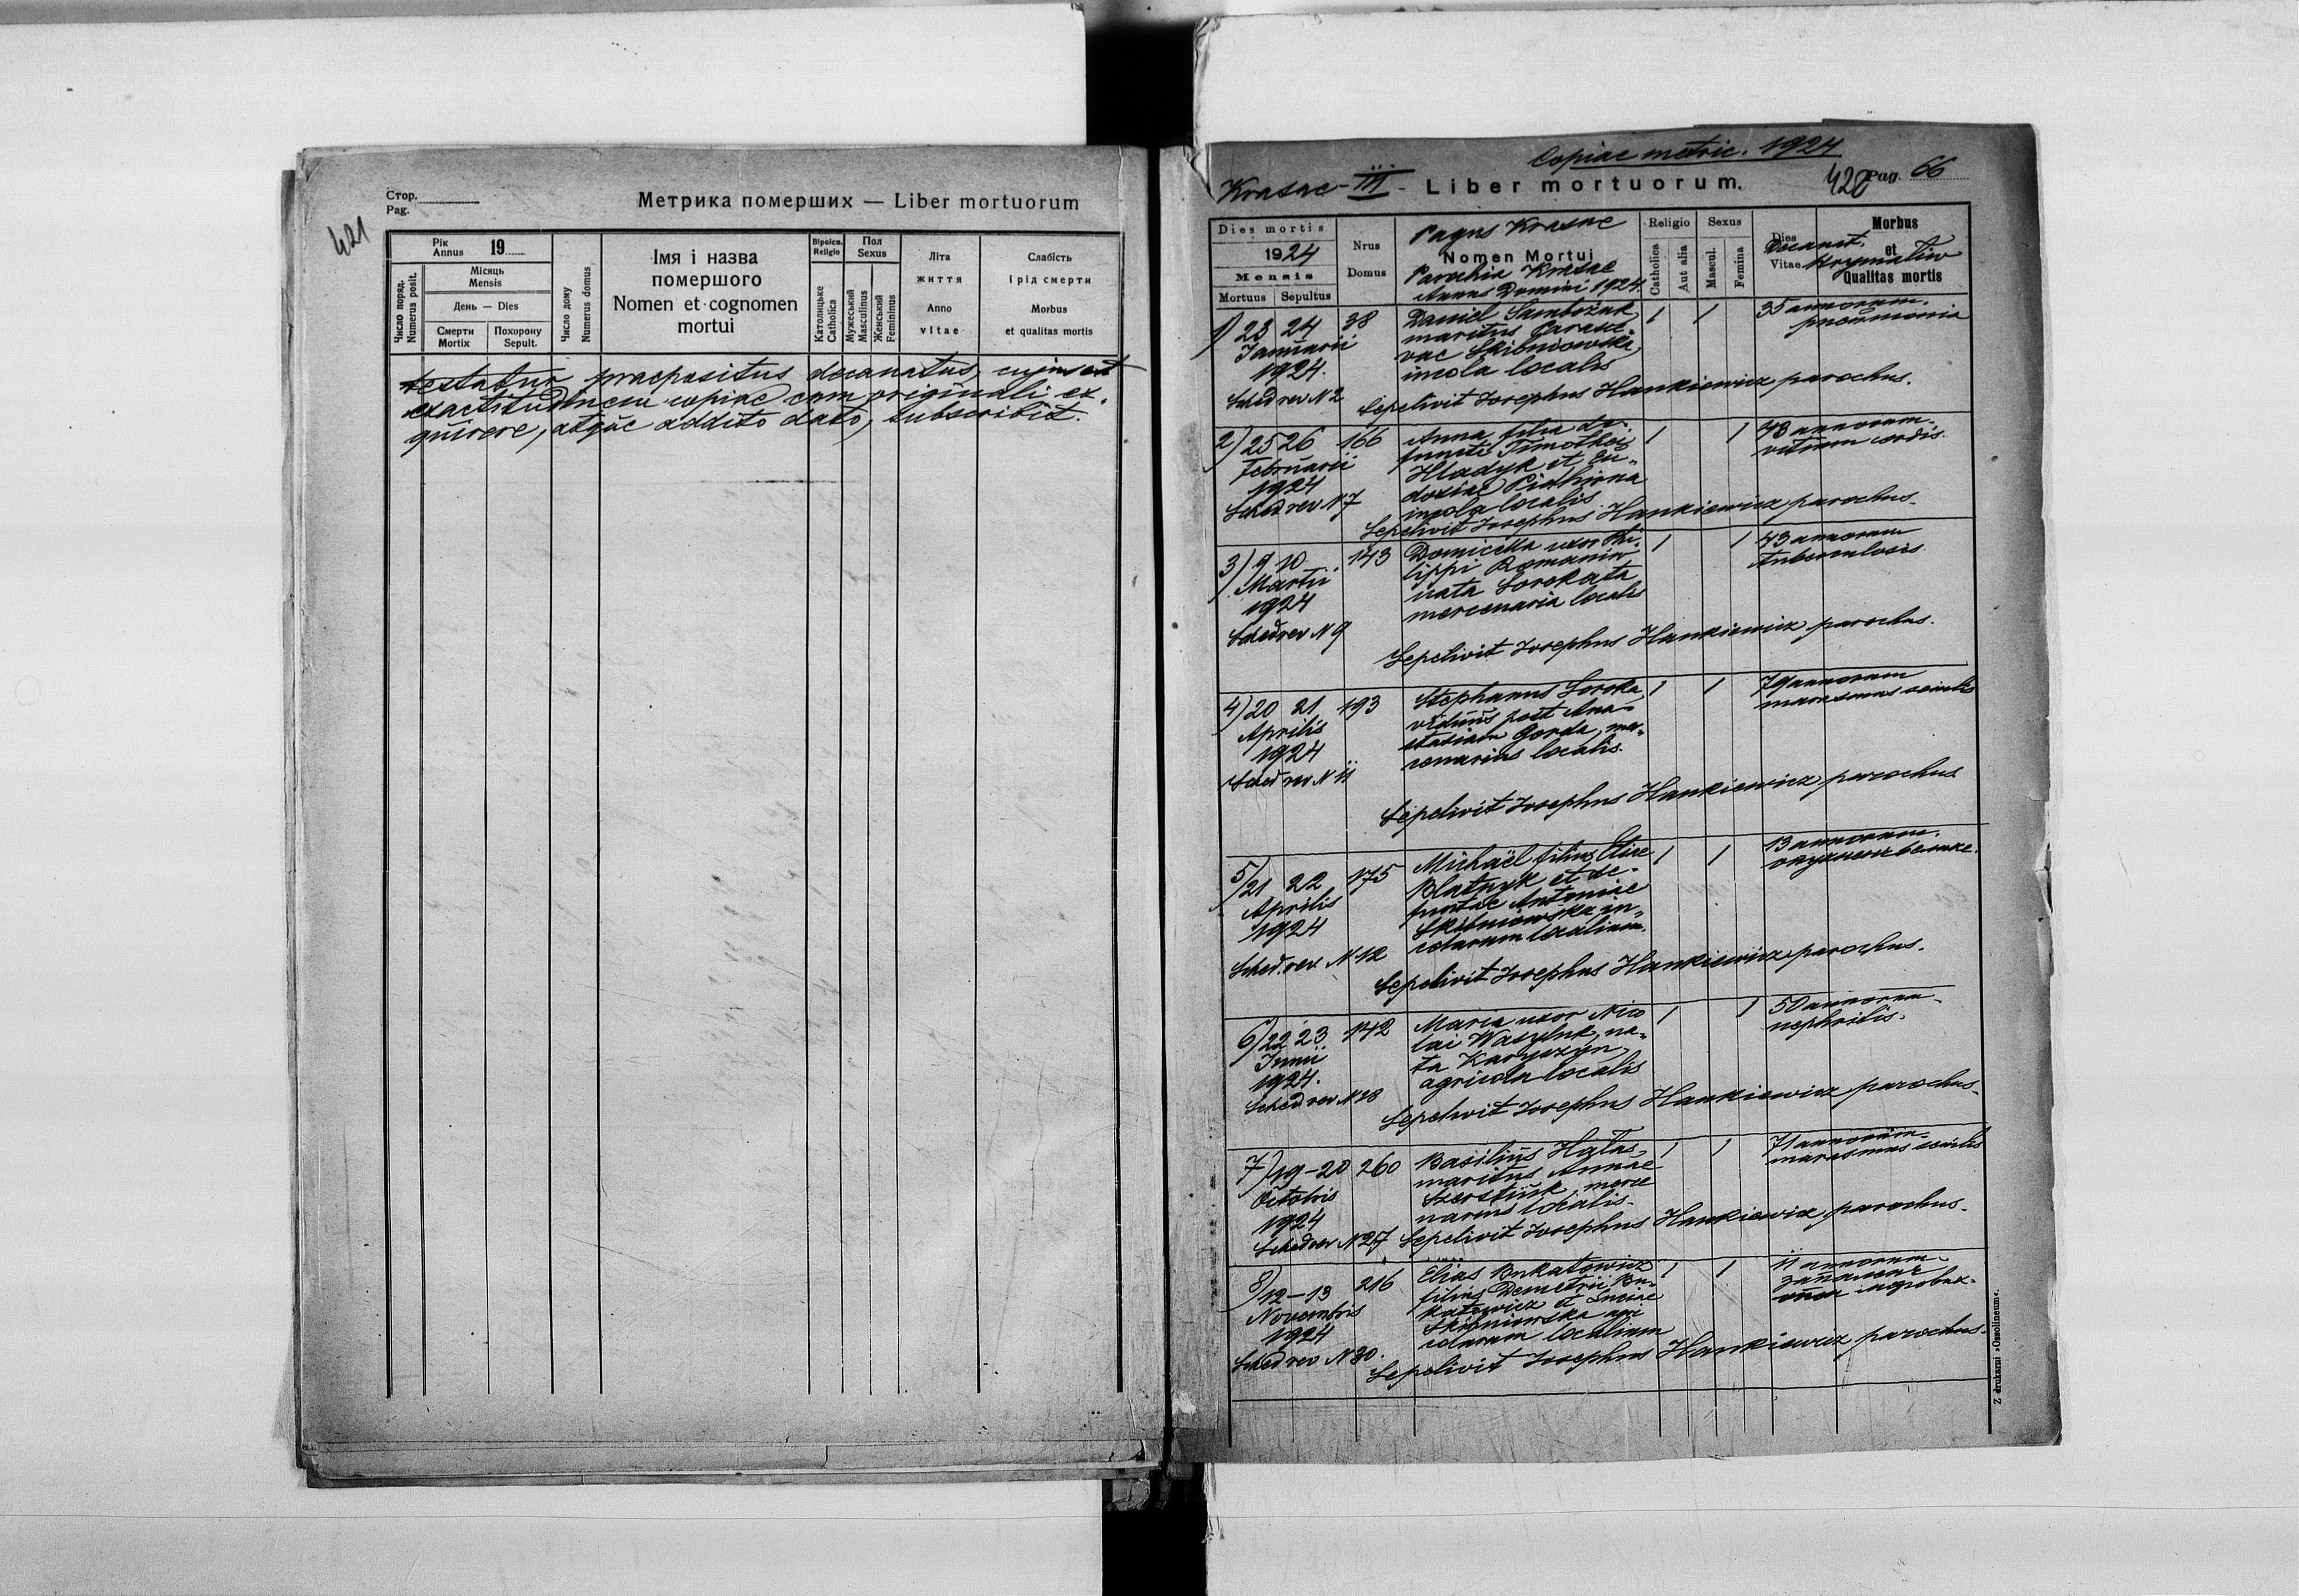 421
Стор.
Pag.
Метрика померших — Liber mortuorum
Число поряд.
Numerus posit.
Рік
Annus 19
Місяць
Mensis
День — Dies
Смерти
Mortix
Похорону
Sepult.
Число дому
Numerus domus
Імя і назва
помершого
Nomen et cognomen
mortui
Віроісп.
Religio
Католицьке
Catholica
Пол
Sexus
Мужеський
Masculinus
Женський
Femininus
Літа
життя
Anno
vitae
Слабість
і рід смерти
Morbus
et qualitas mortis
testatur praepositus decanatus, cujus est
exactitudinem copiae cum originali ex-
quirere, atque addito dato, subscribit.
Copiae metric. 1924
Krasne - III - Liber mortuorum. 420 Pag. 66
Dies mortis
1924
Mensis
Mortuus Sepultus
Nrus
Domus
Pagus Krasne
Nomen Mortui
Parochia Krasne
Annus Domini 1924.
Religio
Catholica
Aut alia
Sexus
Mascul.
Femina
Dies
Vitae
Decanat.
Hrymaliw
Morbus
et
Qualitas mortis
1) 23 24 38 Daniel Sambožuk, 1 1 35 annorum.
Januarii maritus Parasce- pneumonia
1924. vae Skibniowska,
incola localis
Sched rev N 2 Sepelivit Josephus Hankiewicz parochus.
2) 25 26 166 Anna filia de- 1 1 73 annorum.
Februarii functi Timothei vitium cordis.
1924 Hladyk et Eu-
doxiae
Sched rev N 7 incola localis
Sepelivit Josephus Hankiewicz parochus.
3) 9 10 143 Domicella uxor Phi- 1 1 43 annorum
Martii lippi Romaniw tuberculosis.
1924 nata Sorokata
mercenaria localis
Sched rev N 9
Sepelivit Josephus Hankiewicz parochus.
4) 20 21 193 Stephanus Soroka, 1 1 79 annorum
Aprilis viduus post Ana- marasmus senilis
1924 stasiam Gorda, mer-
cenarius localis.
Sched rev N 11
Sepelivit Josephus Hankiewicz parochus
5) 21 22 175 Michaël filius Eliae 1 1 13 annorum.
Aprilis Hlatnyk et de-
1924 functae Antoniae
Skibniowska in-
colarum localium.
Sched. rev N 12
Sepelivit Josephus Hankiewicz parochus.
6) 22 23 142 Maria uxor Nico 1 1 50 annorum
Junii lai Wasyluk, na- nephritis.
1924. ta Karyczyn,
agricola localis
Sched rev N 18
Sepelivit Josephus Hankiewicz parochus.
7) 19-20 260 Basilius Hatas, 1 1 71 annorum.
Octobris maritus Annae marasmus senilis
1924 Szerstiuk, merce
narius localis.
Sched rev N 27 Sepelivit Josephus Hankiewicz parochus.
8) 12-13 216 Elias Bukatowicz 1 1 11 annorum.
Novembris filius Demetrii Bu-
1924 katowicz et Luciae
Skibniowska agri
colarum localium
Sched rev N 30.
Sepelivit Josephus Hankiewicz parochus.
Z drukarni »Ossolineum«.